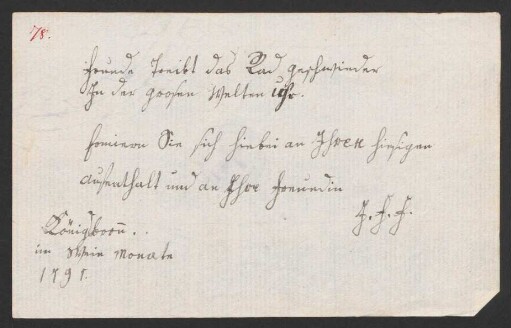 78.
Freude Treibt das Rad geschwinder
In der grosen Welten uhr.
Erinern Sie sich hiebei an Ihren hiesigen
aufenthalt und an Ihre Freundin
Königsbronn..
im Wein Monate
1791.